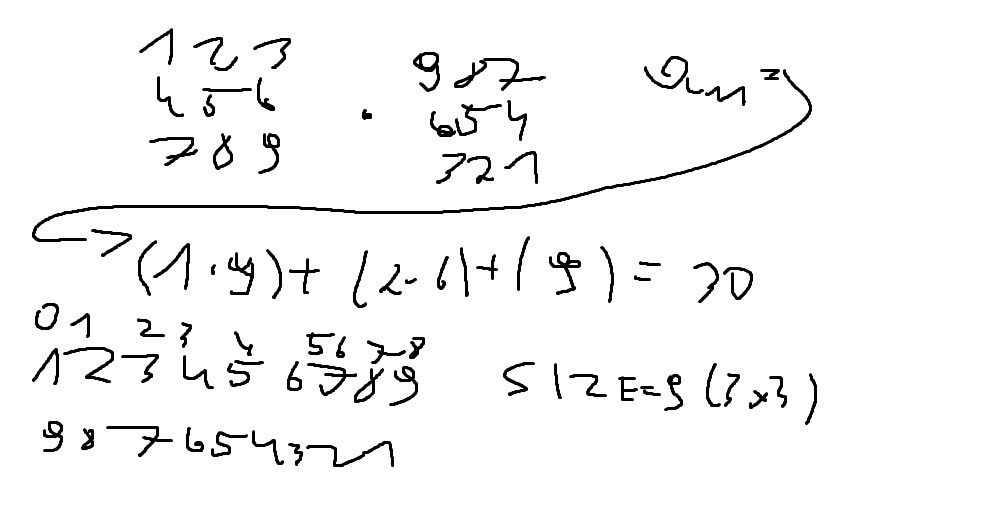 1 2 3
4 5 6 . 9 8 7
7 8 9 6 5 4
3 2 1
a11 =
(1 . 9) + (2 . 6) + ( 9 ) = 30
0 1 2 3 4 5 6 7 8
1 2 3 4 5 6 7 8 9 SIZE = 9 (3x3)
9 8 7 6 5 4 3 2 1